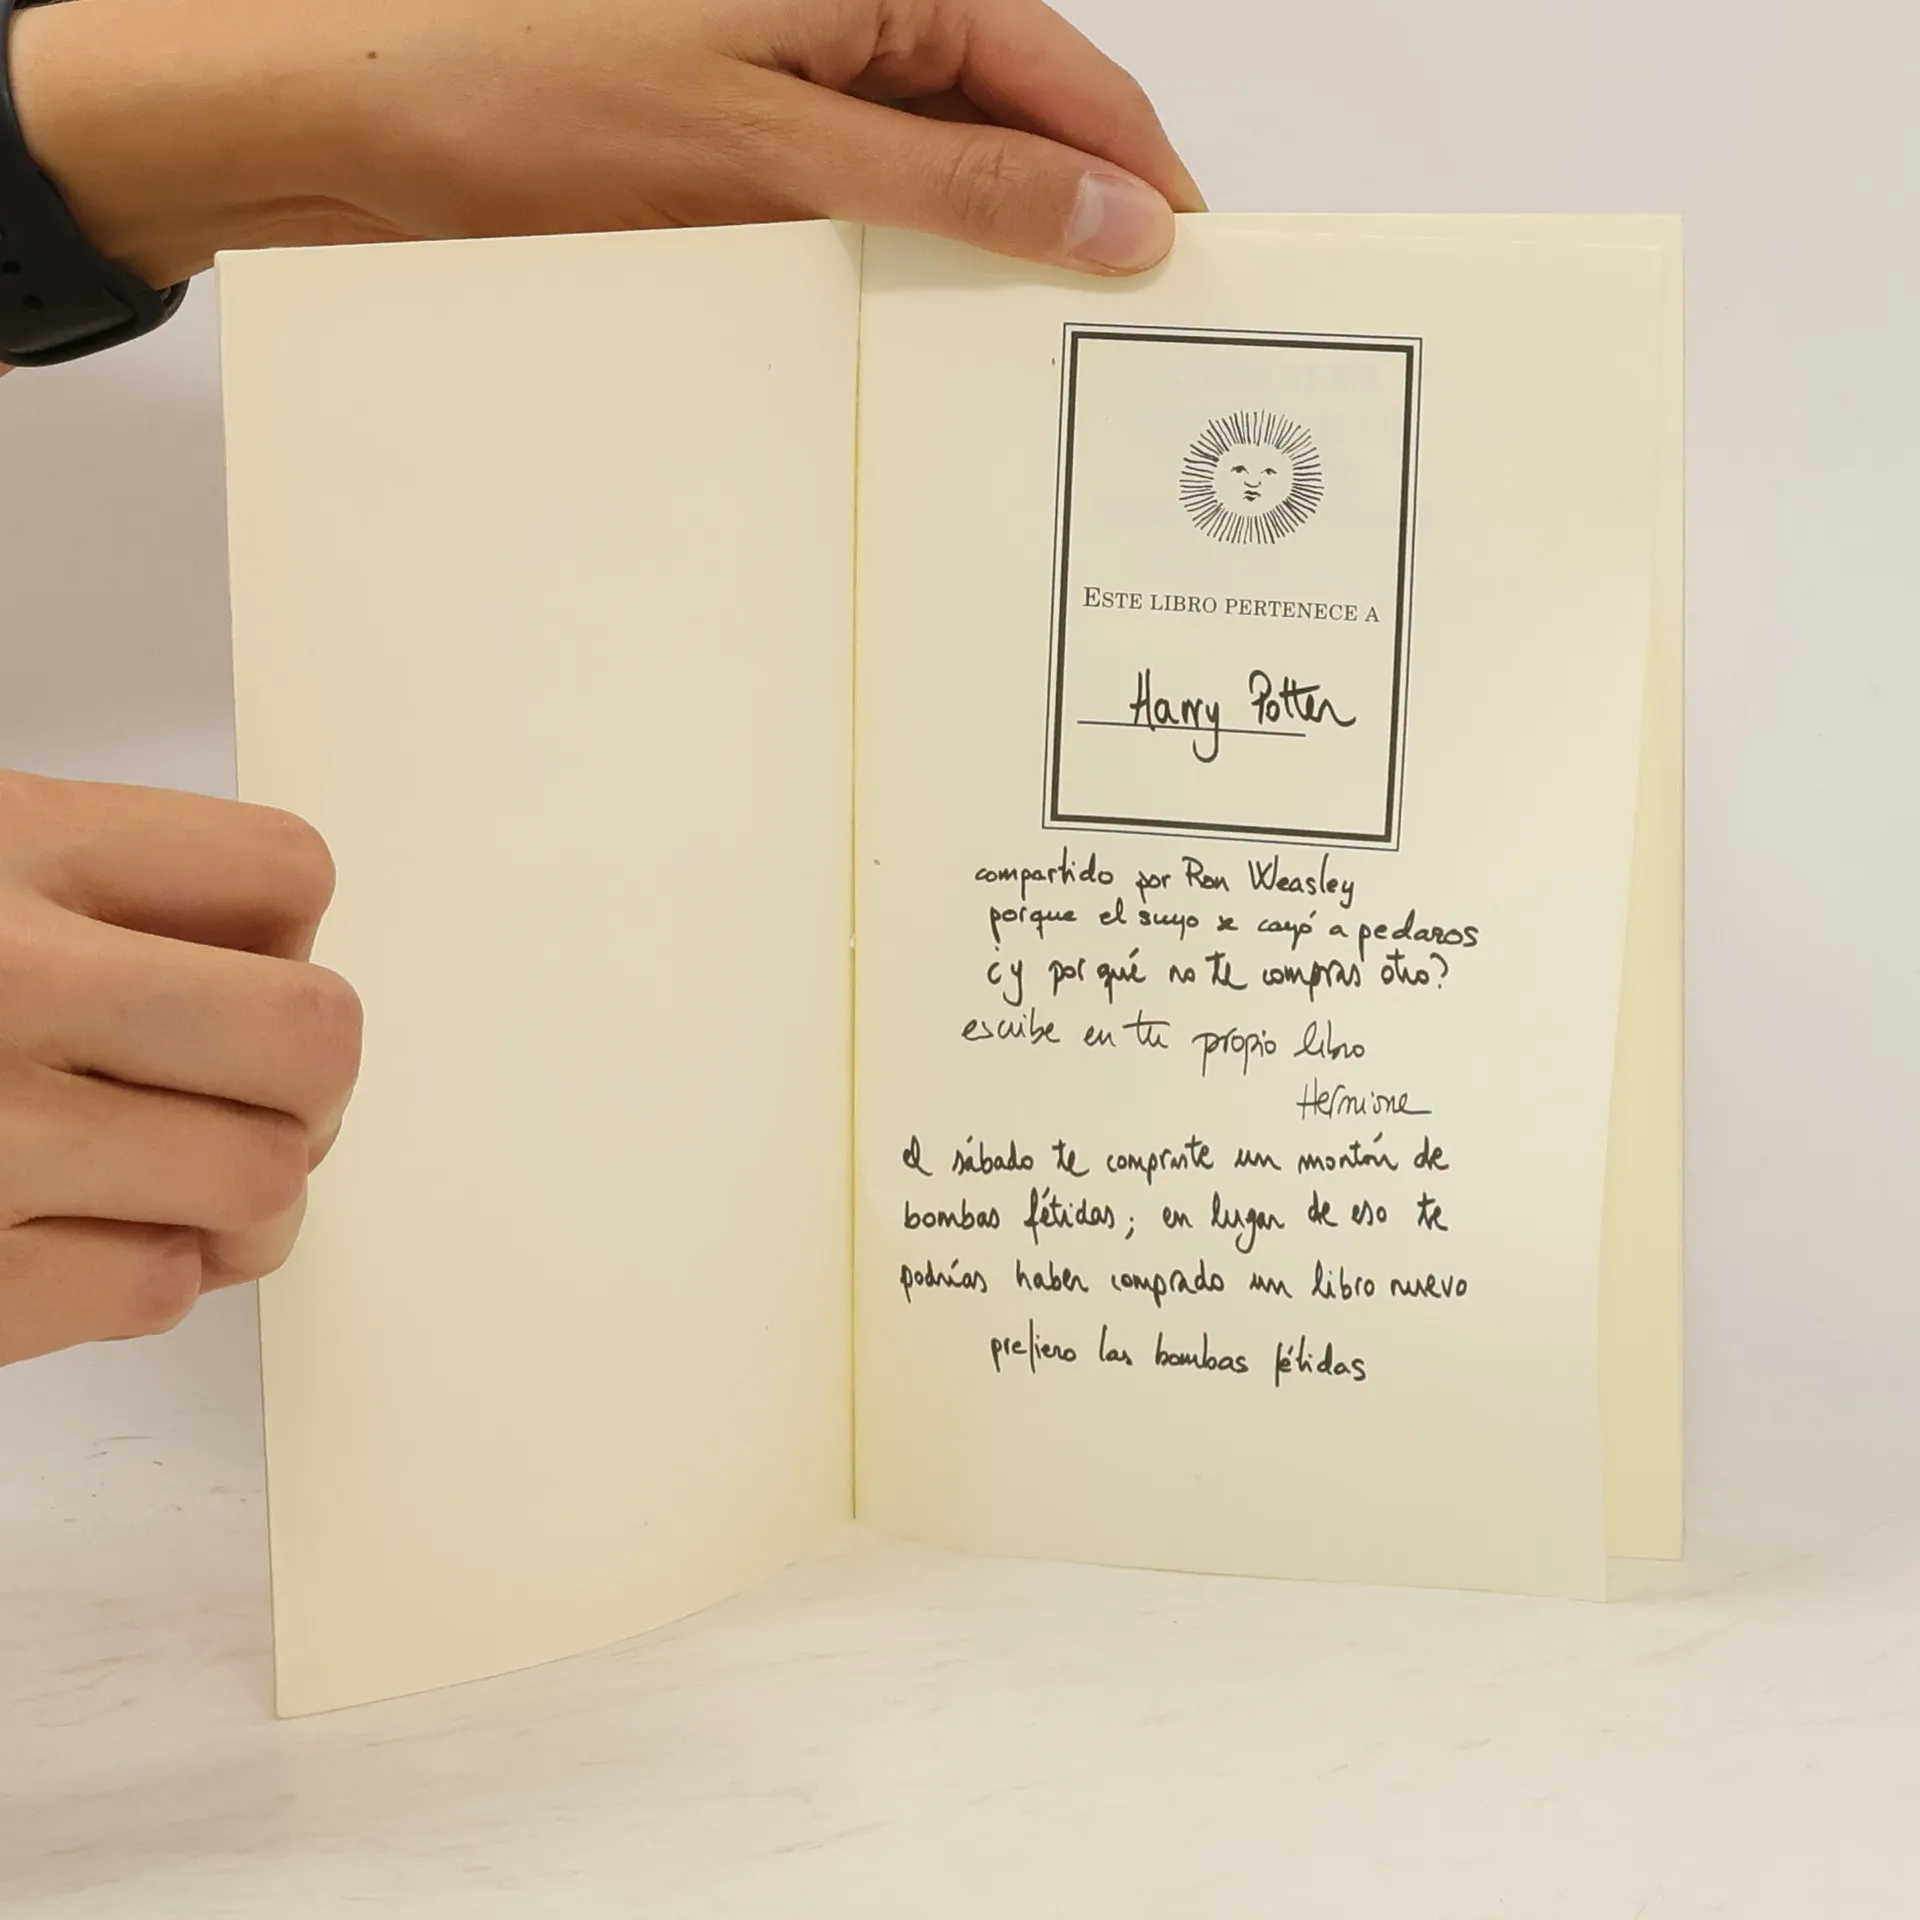 ESTE LIBRO PERTENECE A
Harry Potter
compartido por Ron Weasley
porque el suyo se cayó a pedazos
¿y por qué no te compras otro?
escribe en tu propio libro
Hermione
el sábado te compraste un montón de
bombas fétidas; en lugar de eso te
podrías haber comprado un libro nuevo
prefiero las bombas fétidas